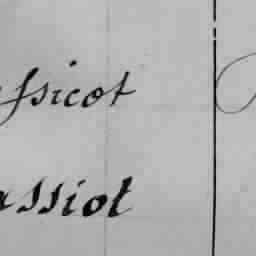 ssicot
assiot